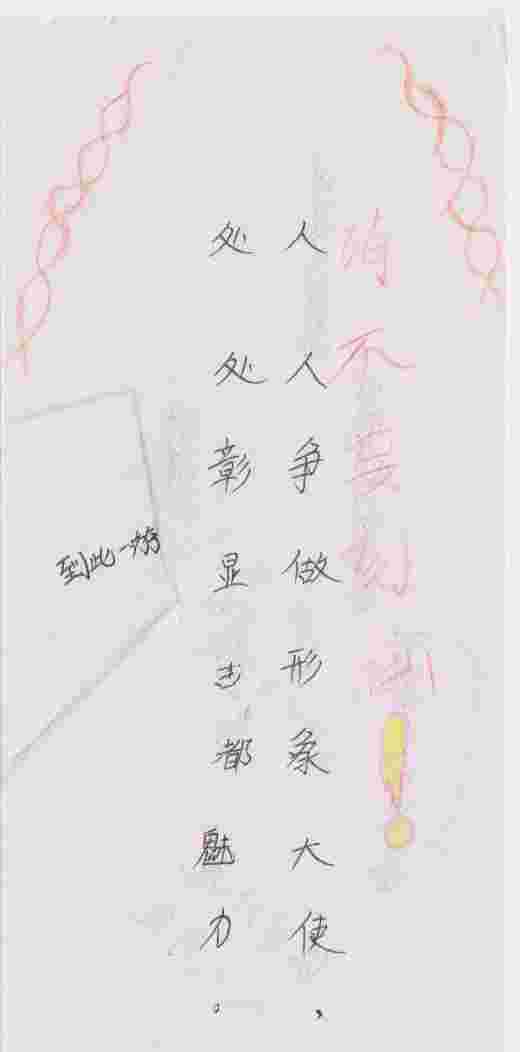 请不要刻！
人人争做形象大使，
处处彰显古都魅力。
到此一游